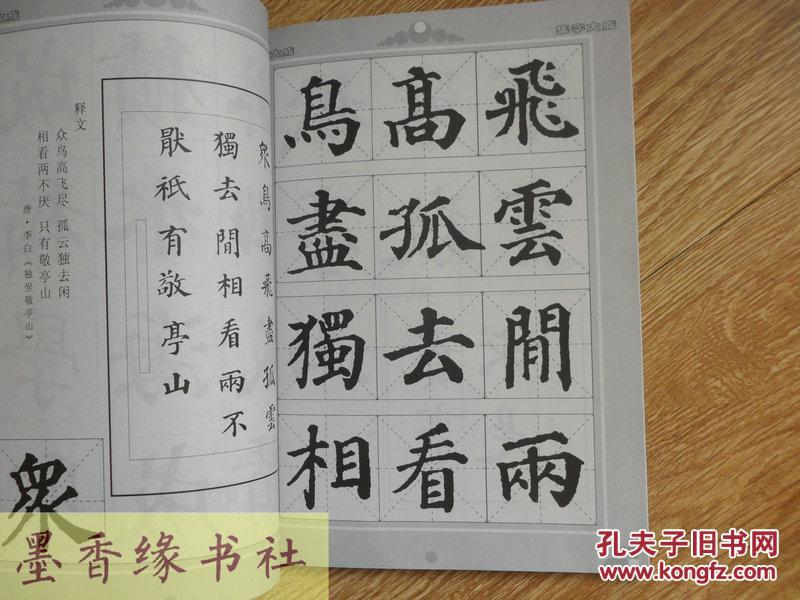 大成
释文
众鸟高飞尽 孤云独去闲
相看两不厌 只有敬亭山
唐·李白《独坐敬亭山》
眾鳥髙飛盡孤雲
獨去閒相看兩不
猒祇有敬亭山
眾
大成
集字大成
鳥髙飛
盡孤雲
獨去閒
相看兩
墨香缘书社
孔夫子旧书网
www.kongfz.com